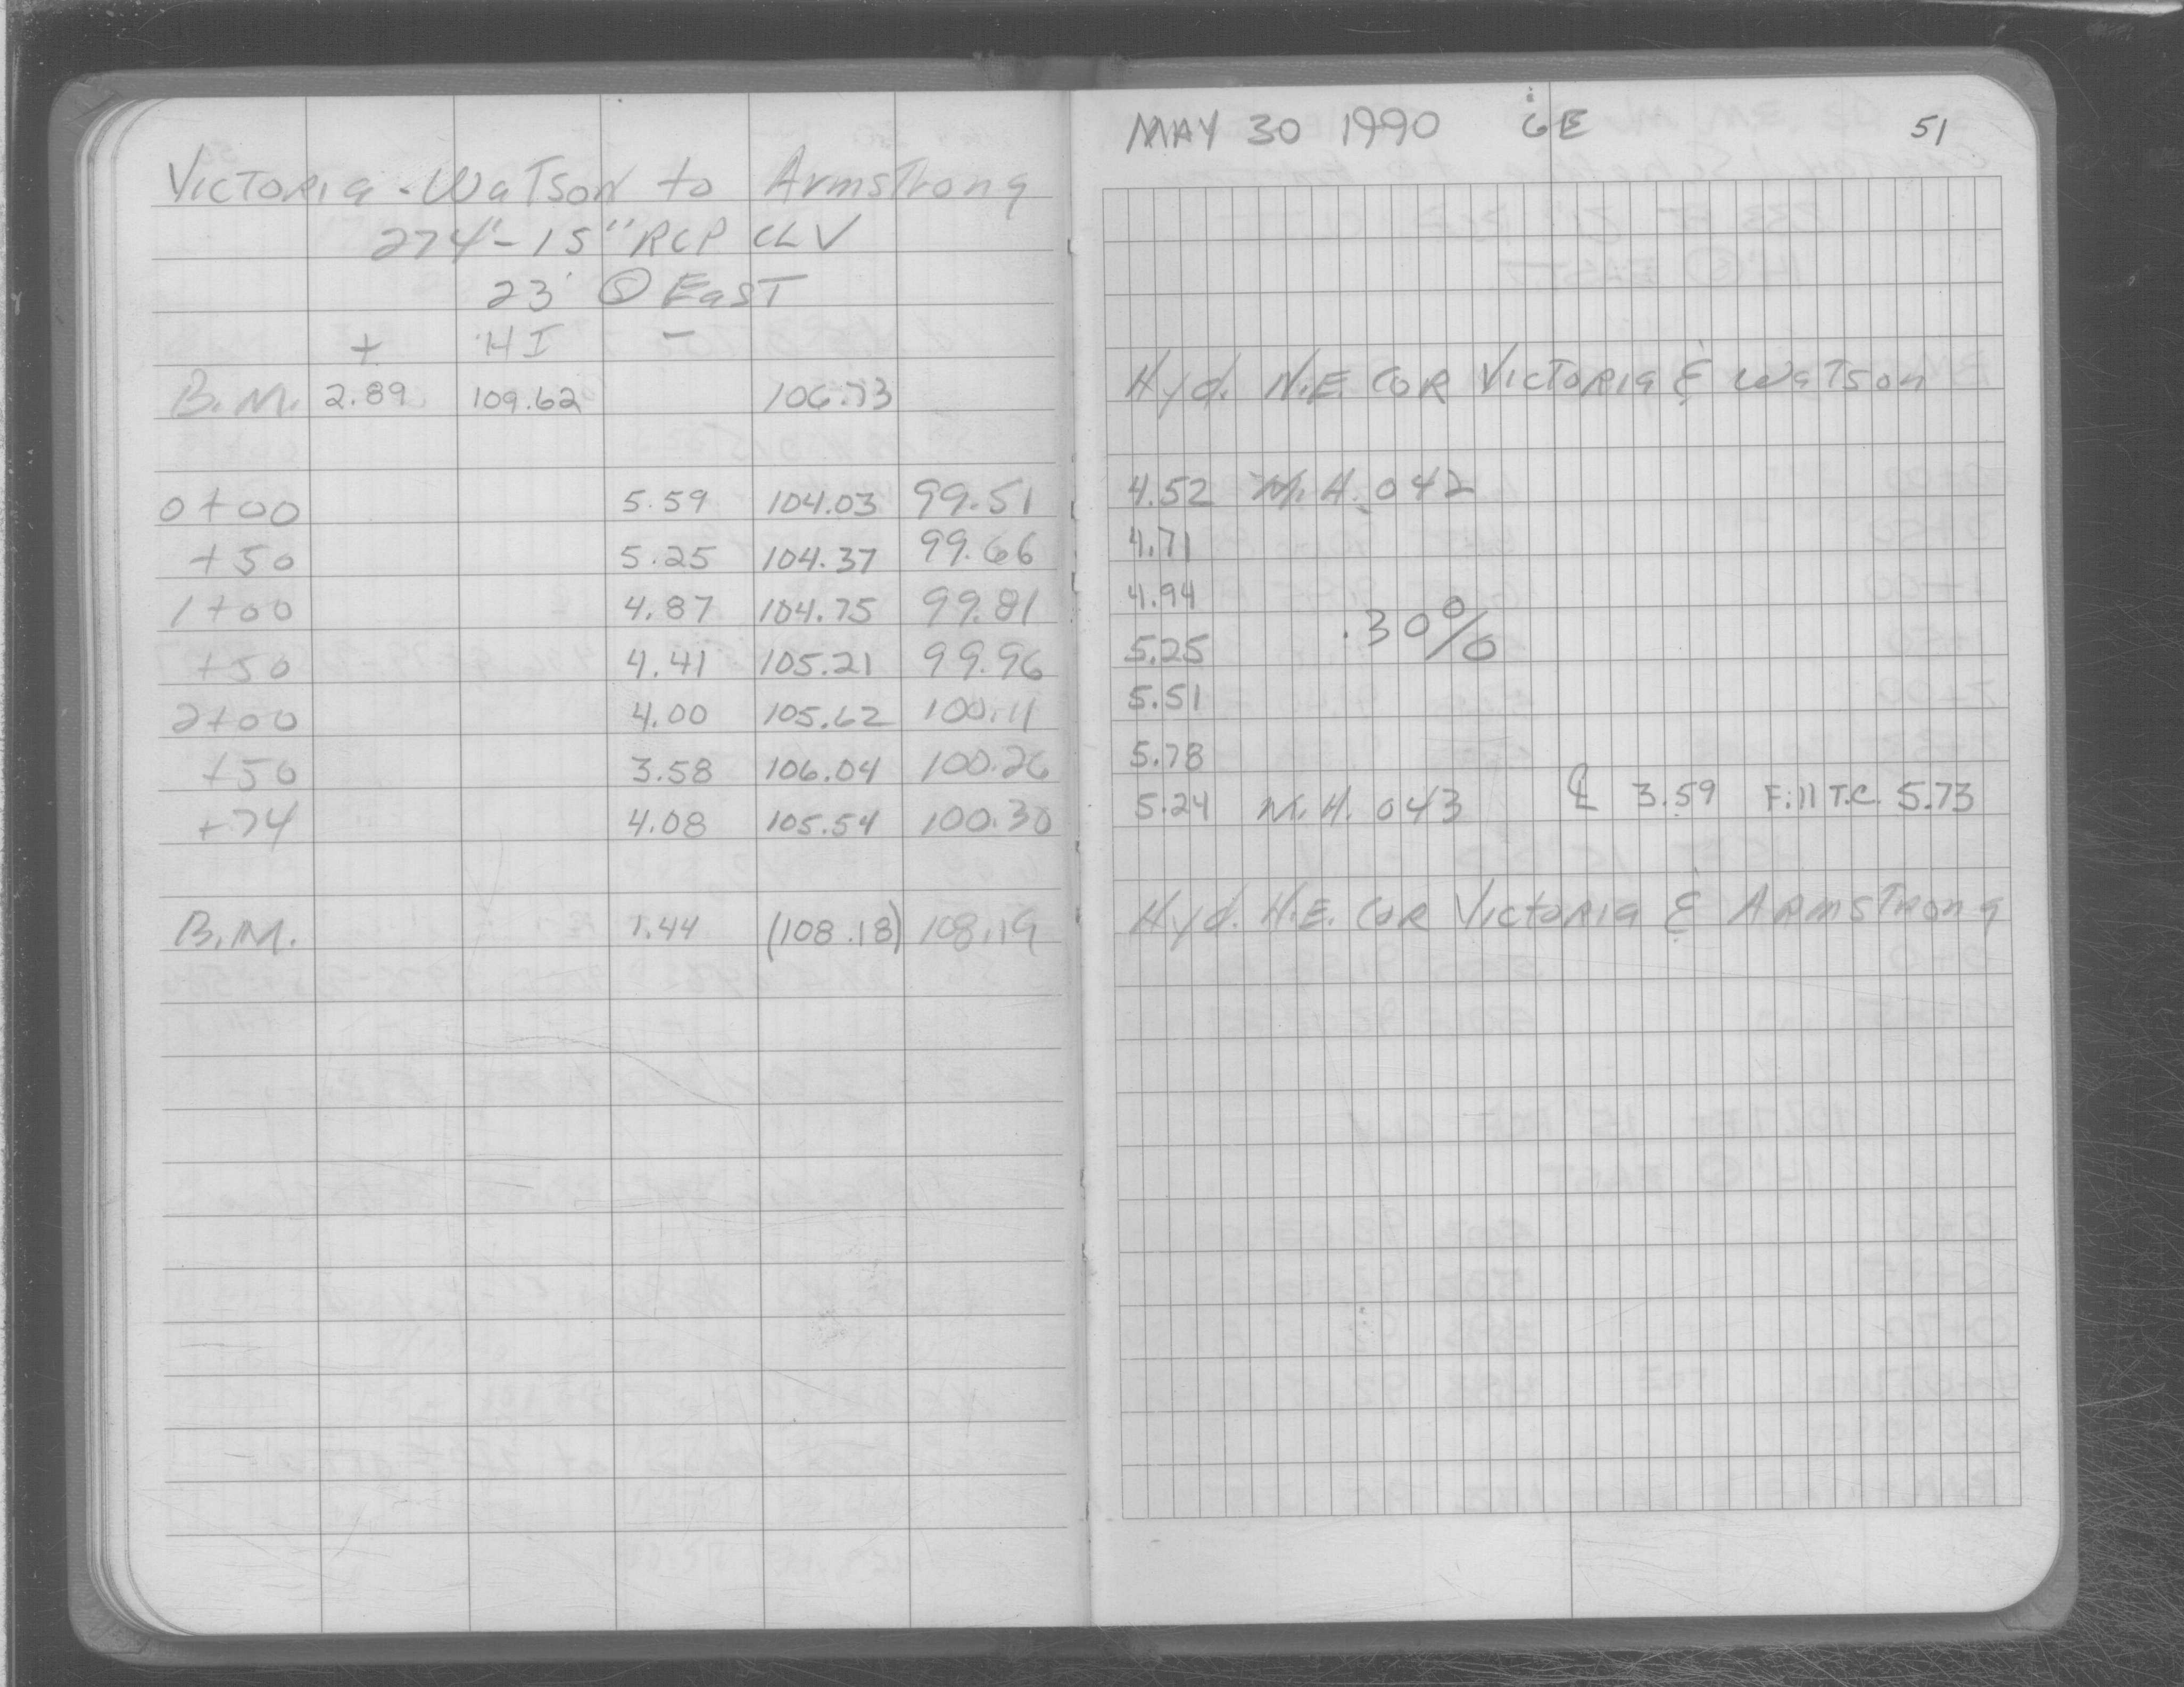 Victoria - Watson to Armstrong
274' - 15" RCP CLV
23' Ⓢ East
+ HI -
B.M. 2.89 109.62 106.73
0+00 5.59 104.03 99.51
+50 5.25 104.37 99.66
1+00 4.87 104.75 99.81
+50 4.41 105.21 99.96
2+00 4.00 105.62 100.11
+50 3.58 106.04 100.26
+74 4.08 105.54 100.30
B.M. 1.44 (108.18) 108.19
MAY 30 1990 GE 51
Hyd. N.E. COR Victoria & Watson
4.52 M.H. 042
4.71
4.94
.30%
5.25
5.51
5.78
5.24 M.H. 043 ℄ 3.59 Fill T.C. 5.73
Hyd. N.E. COR Victoria & Armstrong